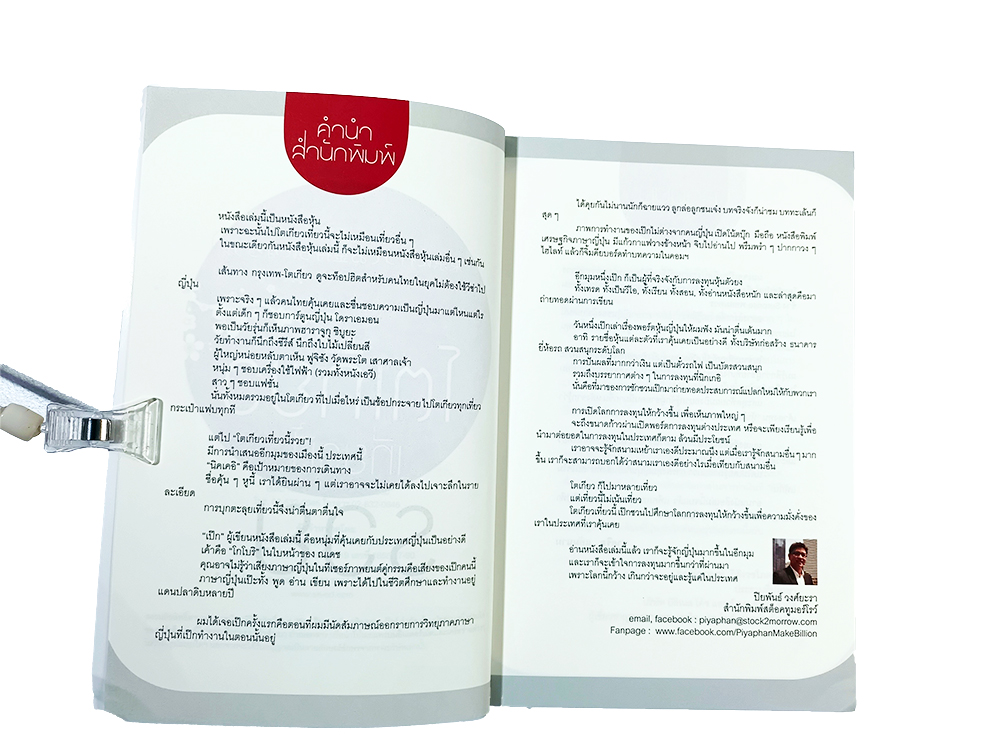 คำนำ
สำนักพิมพ์
หนังสือเล่มนี้เป็นหนังสือหุ้น
เพราะฉะนั้นไปโตเกียวเที่ยวนี้จะไม่เหมือนเที่ยวอื่น ๆ
ในขณะเดียวกันหนังสือหุ้นเล่มนี้ ก็จะไม่เหมือนหนังสือหุ้นเล่มอื่น ๆ เช่นกัน
เส้นทาง กรุงเทพ-โตเกียว ดูจะท้อปฮิตสำหรับคนไทยในยุคไม่ต้องใช้วีซ่าไป
ญี่ปุ่น
เพราะจริง ๆ แล้วคนไทยคุ้นเคยและชื่นชอบความเป็นญี่ปุ่นมาแต่ไหนแต่ไร
ตั้งแต่เด็ก ๆ ก็ชอบการ์ตูนญี่ปุ่น โดราเอมอน
พอเป็นวัยรุ่นก็เห็นภาพฮาราจูกุ ชิบูยะ
วัยทำงานก็นึกถึงซีรีส์ นึกถึงใบไม้เปลี่ยนสี
ผู้ใหญ่หน่อยหลับตาเห็น ฟูจิซัง วัดพระโต เสาศาลเจ้า
หนุ่ม ๆ ชอบเครื่องใช้ไฟฟ้า (รวมทั้งหนังเอวี)
สาว ๆ ชอบแฟชั่น
นั่นทั้งหมดรวมอยู่ในโตเกียว ที่ไปเมื่อไหร่ เป็นช้อปกระจาย ไปโตเกียวทุกเที่ยว
กระเป๋าแฟบทุกที
แต่ไป "โตเกียวเที่ยวนี้รวย"!
มีการนำเสนออีกมุมของเมืองนี้ ประเทศนี้
"นิคเคอิ" คือเป้าหมายของการเดินทาง
ชื่อคุ้น ๆ หูนี้ เราได้ยินผ่าน ๆ แต่เราอาจจะไม่เคยได้ลงไปเจาะลึกในราย
ละเอียด
การบุกตะลุยเที่ยวนี้จึงน่าตื่นตาตื่นใจ
"เป๊ก" ผู้เขียนหนังสือเล่มนี้ คือหนุ่มที่คุ้นเคยกับประเทศญี่ปุ่นเป็นอย่างดี
เค้าคือ "โกโบริ" ในใบหน้าของ ณเดช
คุณอาจไม่รู้ว่าเสียงภาษาญี่ปุ่นในทีเซอร์ภาพยนต์คู่กรรมคือเสียงของเป๊กคนนี้
ภาษาญี่ปุ่นเป๊ะทั้ง พูด อ่าน เขียน เพราะได้ไปใช้ชีวิตศึกษาและทำงานอยู่
แดนปลาดิบหลายปี
ผมได้เจอเป๊กครั้งแรกคือตอนที่ผมมีนัดสัมภาษณ์ออกรายการวิทยุภาคภาษา
ญี่ปุ่นที่เป๊กทำงานในตอนนั้นอยู่
ได้คุยกันไม่นานนักก็ฉายแวว ลูกล่อลูกชนเจ๋ง บทจริงจังก็น่าชม บททะเล้นก็
สุด ๆ
ภาพการทำงานของเป๊กไม่ต่างจากคนญี่ปุ่น เปิดโน้ตบุ๊ก มือถือ หนังสือพิมพ์
เศรษฐกิจภาษาญี่ปุ่น มีแก้วกาแฟวางข้างหน้า จิบไปอ่านไป พรึมพรำ ๆ ปากกาวง ๆ
ไฮไลท์ แล้วก็จิ้มคีย์บอร์ดทำบทความในคอมฯ
อีกมุมหนึ่งเป๊ก ก็เป็นผู้ที่จริงจังกับการลงทุนหุ้นด้วยยิ่ง
ทั้งเทรด ทั้งเป็นวีไอ, ทั้งเรียน ทั้งสอน, ทั้งอ่านหนังสือหนัก และล่าสุดคือมา
ถ่ายทอดผ่านการเขียน
วันหนึ่งเป๊กเล่าเรื่องพอร์ตหุ้นญี่ปุ่นให้ผมฟัง มันน่าตื่นเต้นมาก
อาทิ รายชื่อหุ้นแต่ละตัวที่เราคุ้นเคยเป็นอย่างดี ทั้งบริษัทก่อสร้าง ธนาคาร
ยี่ห้อรถ สวนสนุกระดับโลก
การปันผลที่มากกว่าเงิน แต่เป็นตั๋วรถไฟ เป็นบัตรสวนสนุก
รวมถึงบรรยากาศต่าง ๆ ในการลงทุนที่นิกเกอิ
นั่นคือที่มาของการชักชวนเป๊กมาถ่ายทอดประสบการณ์แปลกใหม่ให้กับพวกเรา
การเปิดโลกการลงทุนให้กว้างขึ้น เพื่อเห็นภาพใหญ่ ๆ
จะถึงขนาดก้าวผ่านเปิดพอร์ตการลงทุนต่างประเทศ หรือจะเพียงเรียนรู้เพื่อ
นำมาต่อยอดในการลงทุนในประเทศก็ตาม ล้วนมีประโยชน์
เราอาจจะรู้จักสนามเหย้าเราเองดีประมาณนึง แต่เมื่อเรารู้จักสนามอื่น ๆ มาก
ขึ้น เราก็จะสามารถบอกได้ว่าสนามเราเองดีอย่างไรเมื่อเทียบกับสนามอื่น
โตเกียว ก็ไปมาหลายเที่ยว
แต่เที่ยวนี้ไม่เน้นเที่ยว
โตเกียวเที่ยวนี้ เป๊กชวนไปศึกษาโลกการลงทุนให้กว้างขึ้นเพื่อความมั่งคั่งของ
เราในประเทศที่เราคุ้นเคย
อ่านหนังสือเล่มนี้แล้ว เราก็จะรู้จักญี่ปุ่นมากขึ้นในอีกมุม
และเราก็จะเข้าใจการลงทุนมากขึ้นกว่าที่ผ่านมา
เพราะโลกนี้กว้าง เกินกว่าจะอยู่และรู้แค่ในประเทศ
ปิยพันธ์ วงศ์ยะรา
สำนักพิมพ์สต็อคทูมอร์โรว์
email, facebook : piyaphan@stock2morrow.com
Fanpage : www.facebook.com/PiyaphanMakeBillion